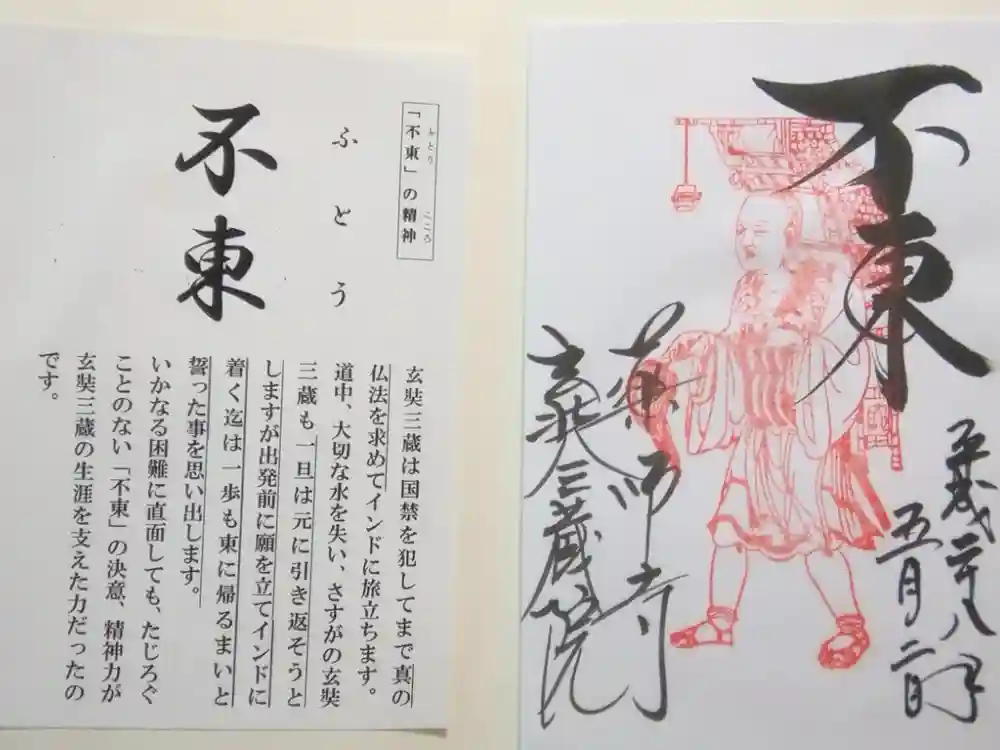 「不東」の精神
ふとう
こころ
ふとう
不東
玄奘三蔵は国禁を犯してまで真の
仏法を求めてインドに旅立ちます。
道中、大切な水を失い、さすがの玄奘
三蔵も一旦は元に引き返そうと
しますが出発前に願を立てインドに
着く迄は一歩も東に帰るまいと
誓った事を思い出します。
いかなる困難に直面しても、たじろぐ
ことのない「不東」の決意、精神力が
玄奘三蔵の生涯を支えた力だったの
です。
不東
平成二十八年
五月二日
薬師寺
玄奘三蔵院